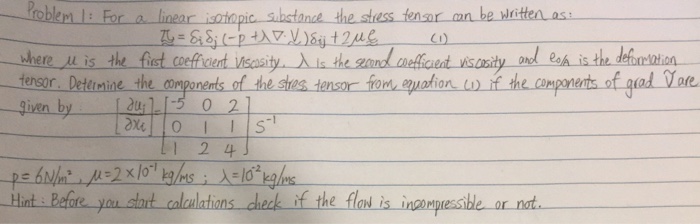 Problem 1: For a linear isotropic substance the stress tensor can be written as:
= δiδj(-p+λ∇·V)δij+2μe (1)
where μ is the first coefficient Viscosity. λ is the second coefficient viscosity and is the deformation
tensor. Determine the components of the stress tensor from equation (1) if the components of grad V are
given by [∂uj/∂xi]=[-5 0 2
0 1 1
1 2 4] s⁻¹
p=6N/m², μ=2×10⁻¹ kg/ms; λ=10⁻² kg/ms
Hint: Before you start calculations check if the flow is incompressible or not.